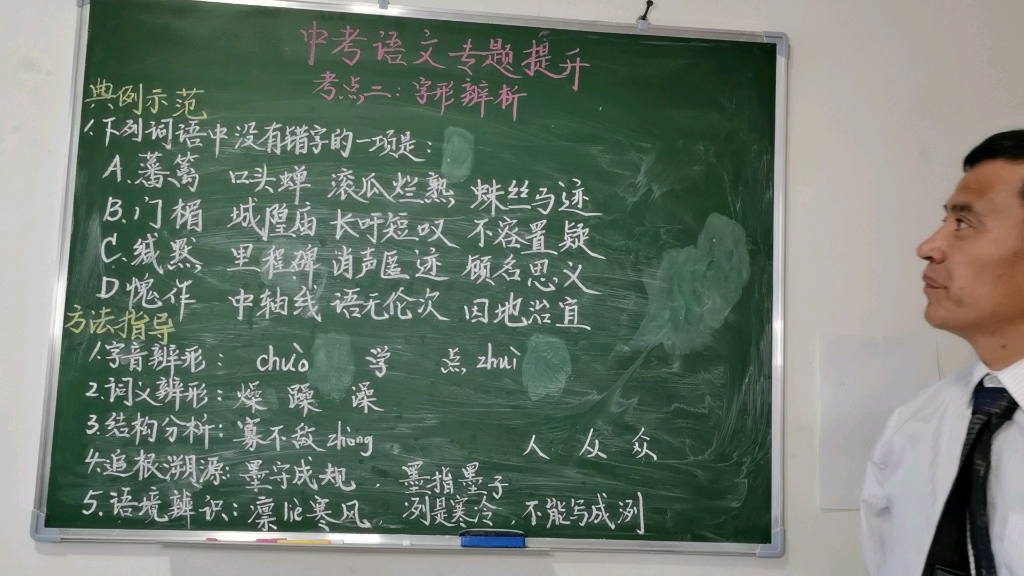 中考语文专题提升
考点二：字形辨析
典例示范
1.下列词语中没有错字的一项是：
A.藩篱 口头蝉 滚瓜烂熟 蛛丝马迹
B.门楣 城隍庙 长吁短叹 不容置疑
C.缄默 里程碑 消声匿迹 顾名思义
D 愧作 中轴线 语无伦次 因地治宜
方法指导
1.字音辨形： chuò 学 点 zhuì
2.词义辨形：燥 躁 澡
3.结构分析：寡不敌 zhòng 人 从 众
4.追根溯源：墨守成规 . 墨指墨子
5.语境辨识：凛 liè 寒风 冽是寒冷，不能写成洌